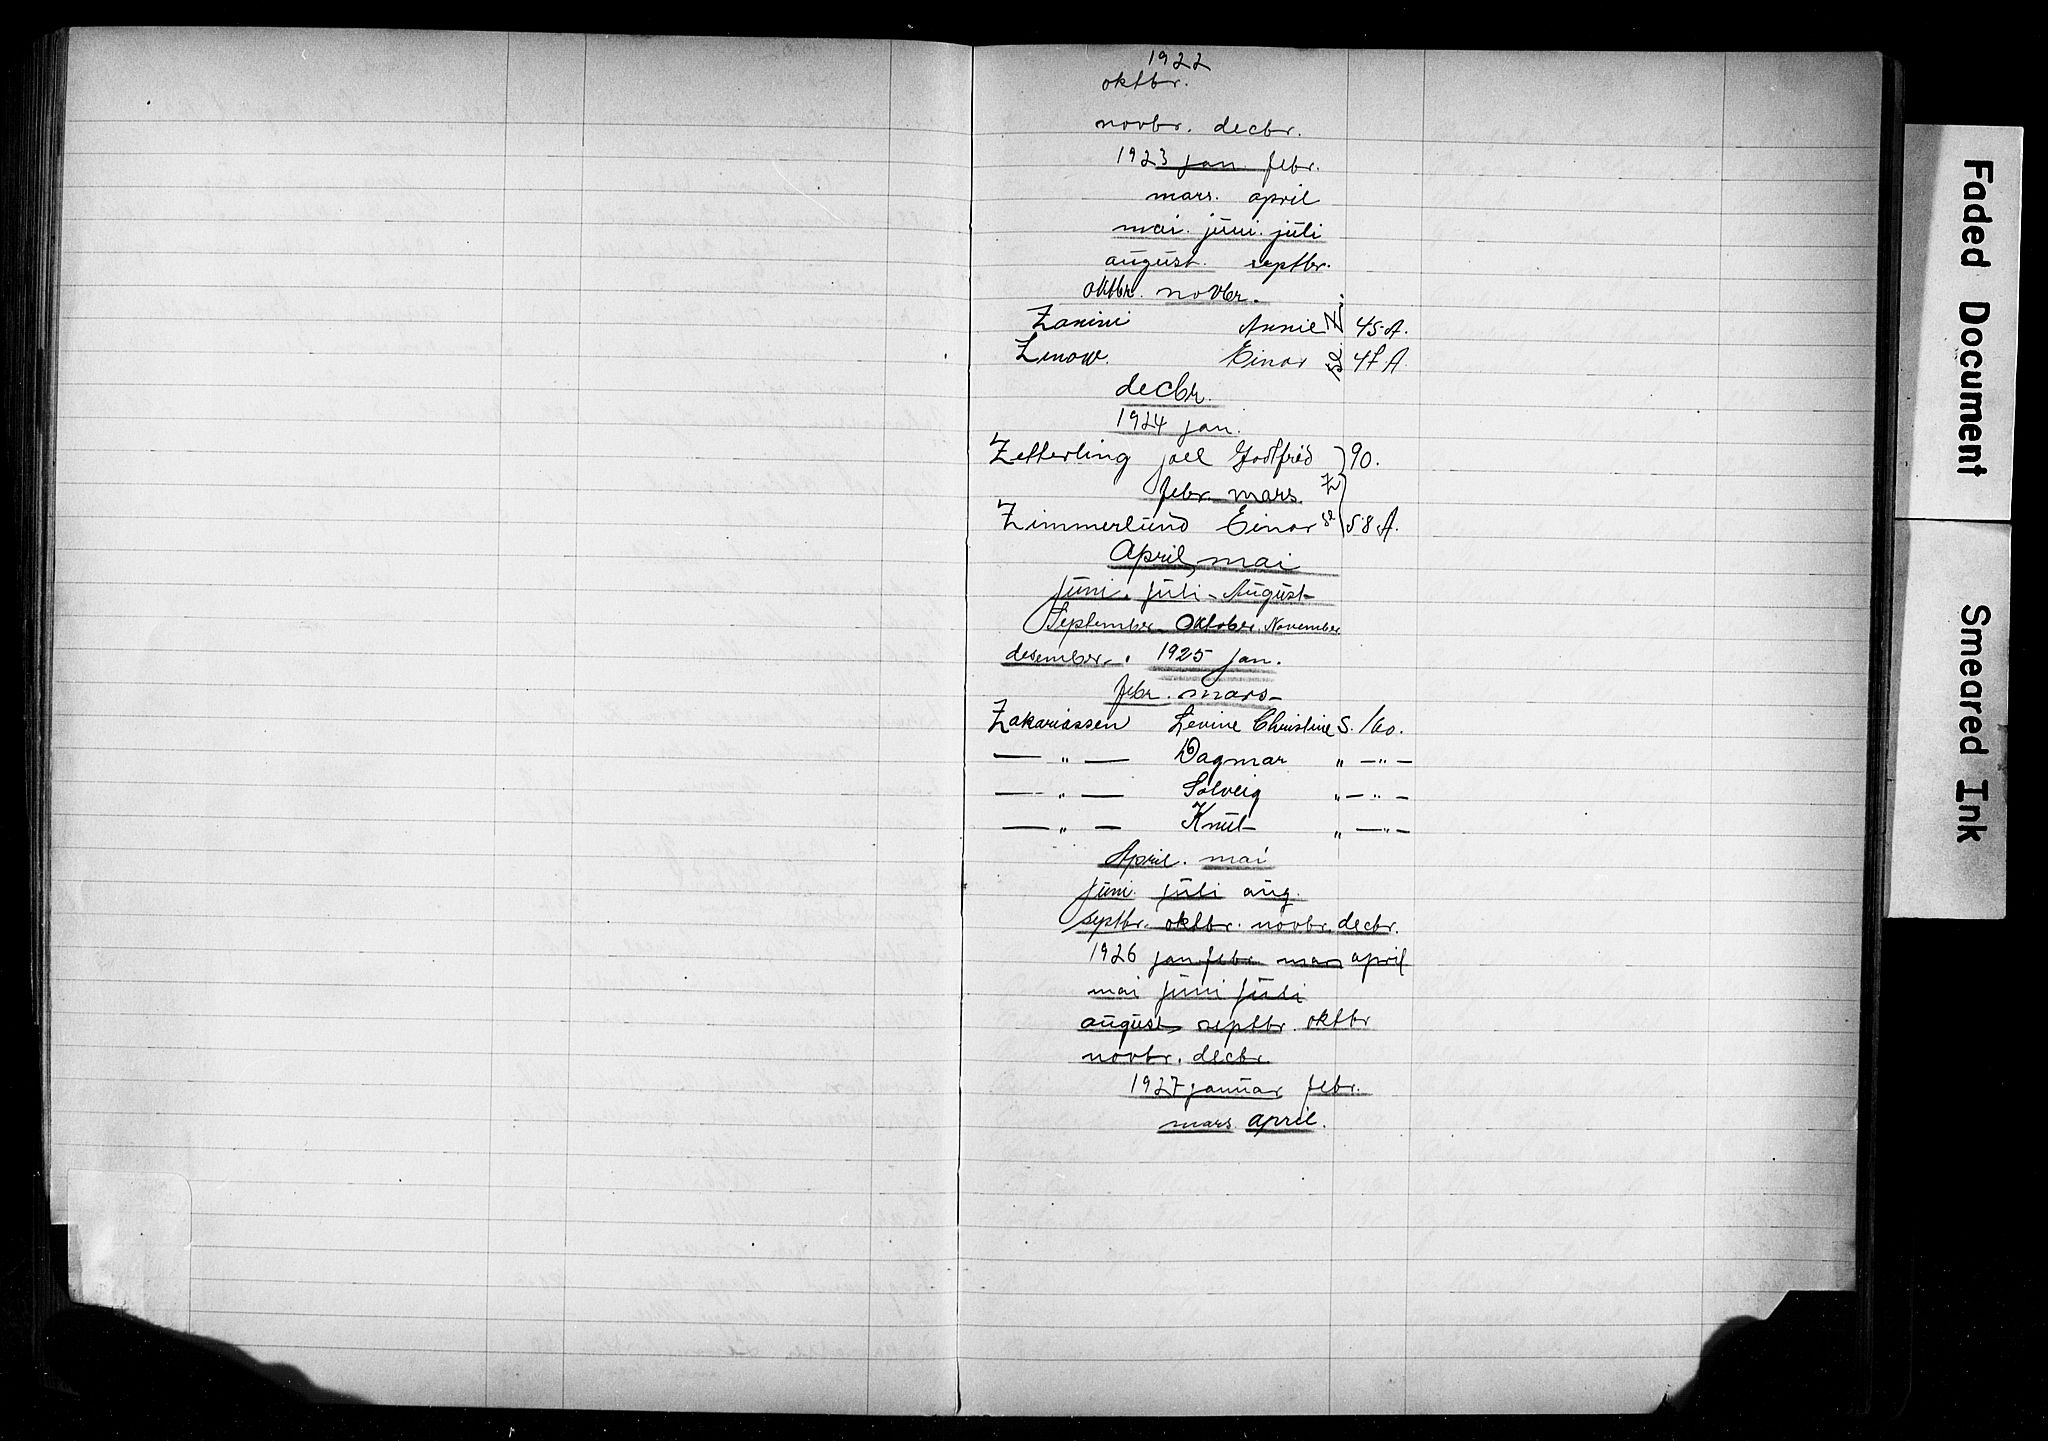 1922
oktbr.
novbr. decbr.
1923 jan. febr.
mars. april
mai. juni. juli
august. septbr.
oktbr. novbr.
Zanini Annie 45 A.
Zenow. Einar 47 A.
decbr.
1924 jan.
Zetterling joel Godtfred 90.
febr. mars.
Zimmerlund Einar 58 A.
April, mai
juni. juli - August
September - Oktober. November
desember. 1925 jan.
febr. mars
Zakariassen Levine Christine S. 160.
— " — Dagmar " — " —
— " — Solveig " — " —
— " — Knut " — " —
April. mai
juni. juli aug.
septbr. oktbr. novbr. decbr.
1926 jan febr. mars april
mai juni juli
august, septbr. oktbr
novbr. decbr.
1927 januar febr.
mars. april.
Faded Document
Smeared Ink